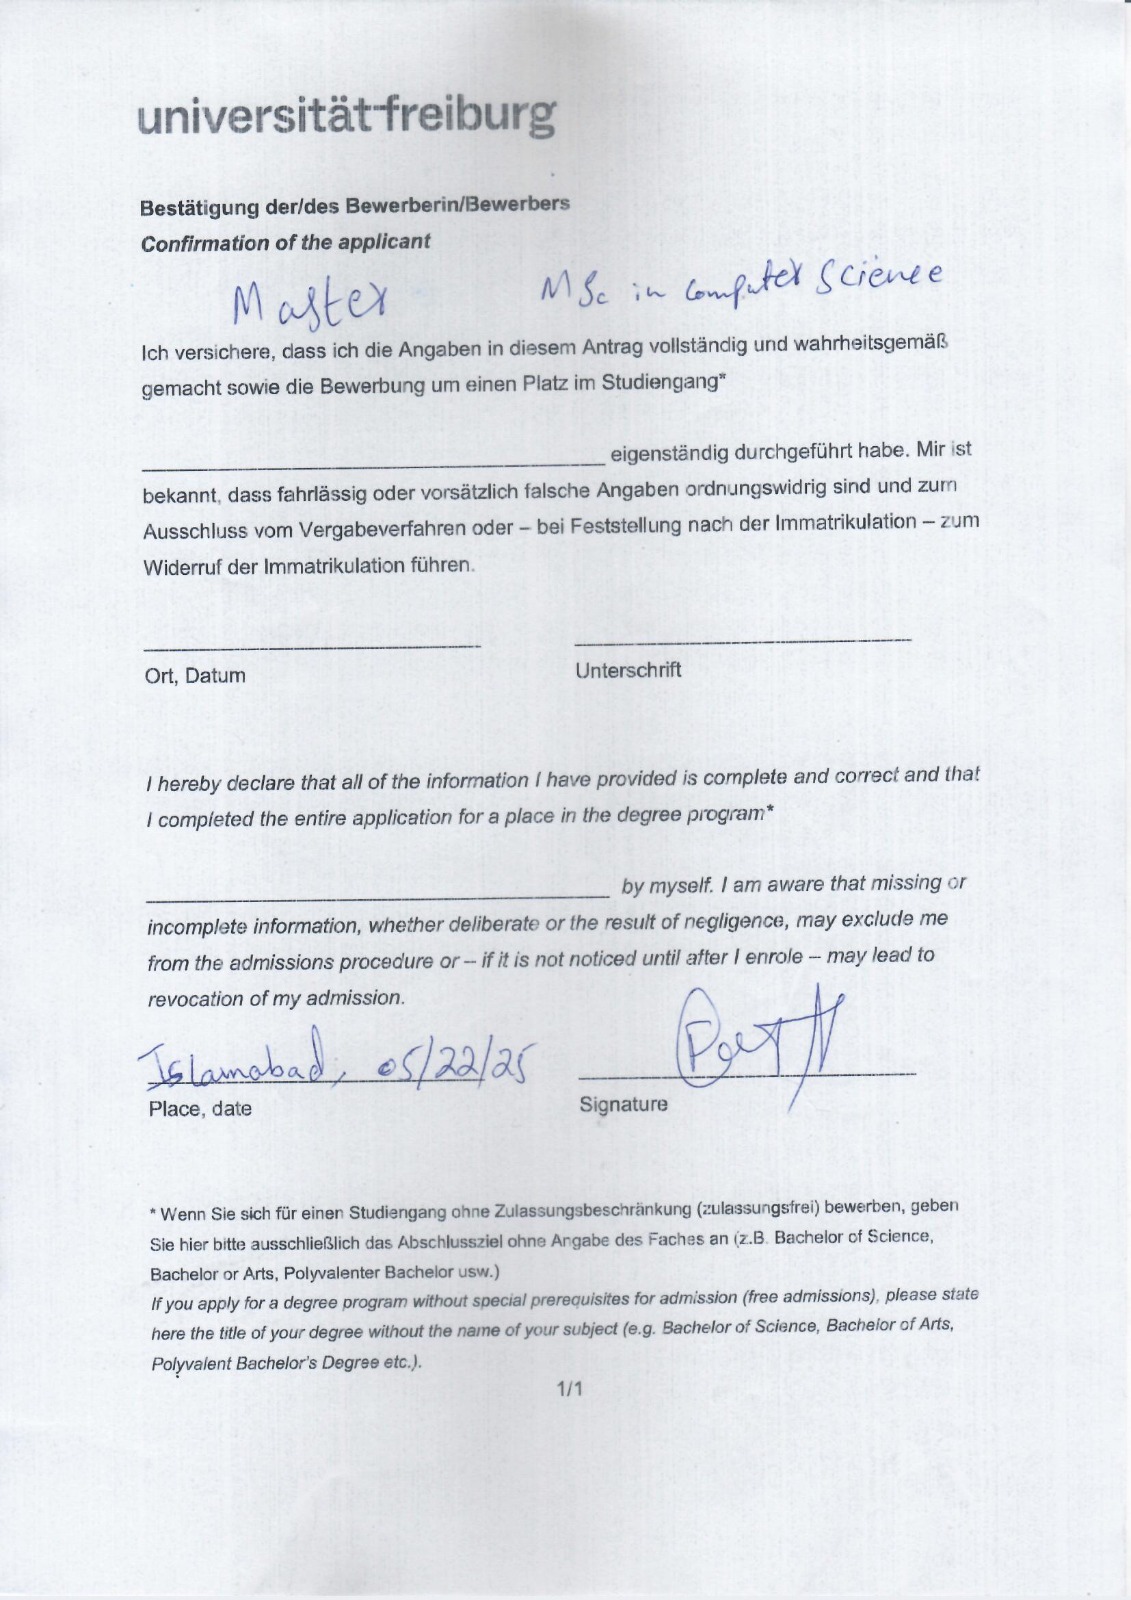 universität freiburg
Bestätigung der/des Bewerberin/Bewerbers
Confirmation of the applicant
Master MSc in Computer Science
Ich versichere, dass ich die Angaben in diesem Antrag vollständig und wahrheitsgemäß
gemacht sowie die Bewerbung um einen Platz im Studiengang*
eigenständig durchgeführt habe. Mir ist
bekannt, dass fahrlässig oder vorsätzlich falsche Angaben ordnungswidrig sind und zum
Ausschluss vom Vergabeverfahren oder – bei Feststellung nach der Immatrikulation – zum
Widerruf der Immatrikulation führen.
Ort, Datum Unterschrift
I hereby declare that all of the information I have provided is complete and correct and that
I completed the entire application for a place in the degree program*
by myself. I am aware that missing or
incomplete information, whether deliberate or the result of negligence, may exclude me
from the admissions procedure or – if it is not noticed until after I enrole – may lead to
revocation of my admission.
Islamabad, 05/22/25
Place, date Signature
* Wenn Sie sich für einen Studiengang ohne Zulassungsbeschränkung (zulassungsfrei) bewerben, geben
Sie hier bitte ausschließlich das Abschlussziel ohne Angabe des Faches an (z.B. Bachelor of Science,
Bachelor or Arts, Polyvalenter Bachelor usw.)
If you apply for a degree program without special prerequisites for admission (free admissions), please state
here the title of your degree without the name of your subject (e.g. Bachelor of Science, Bachelor of Arts,
Polyvalent Bachelor's Degree etc.).
1/1